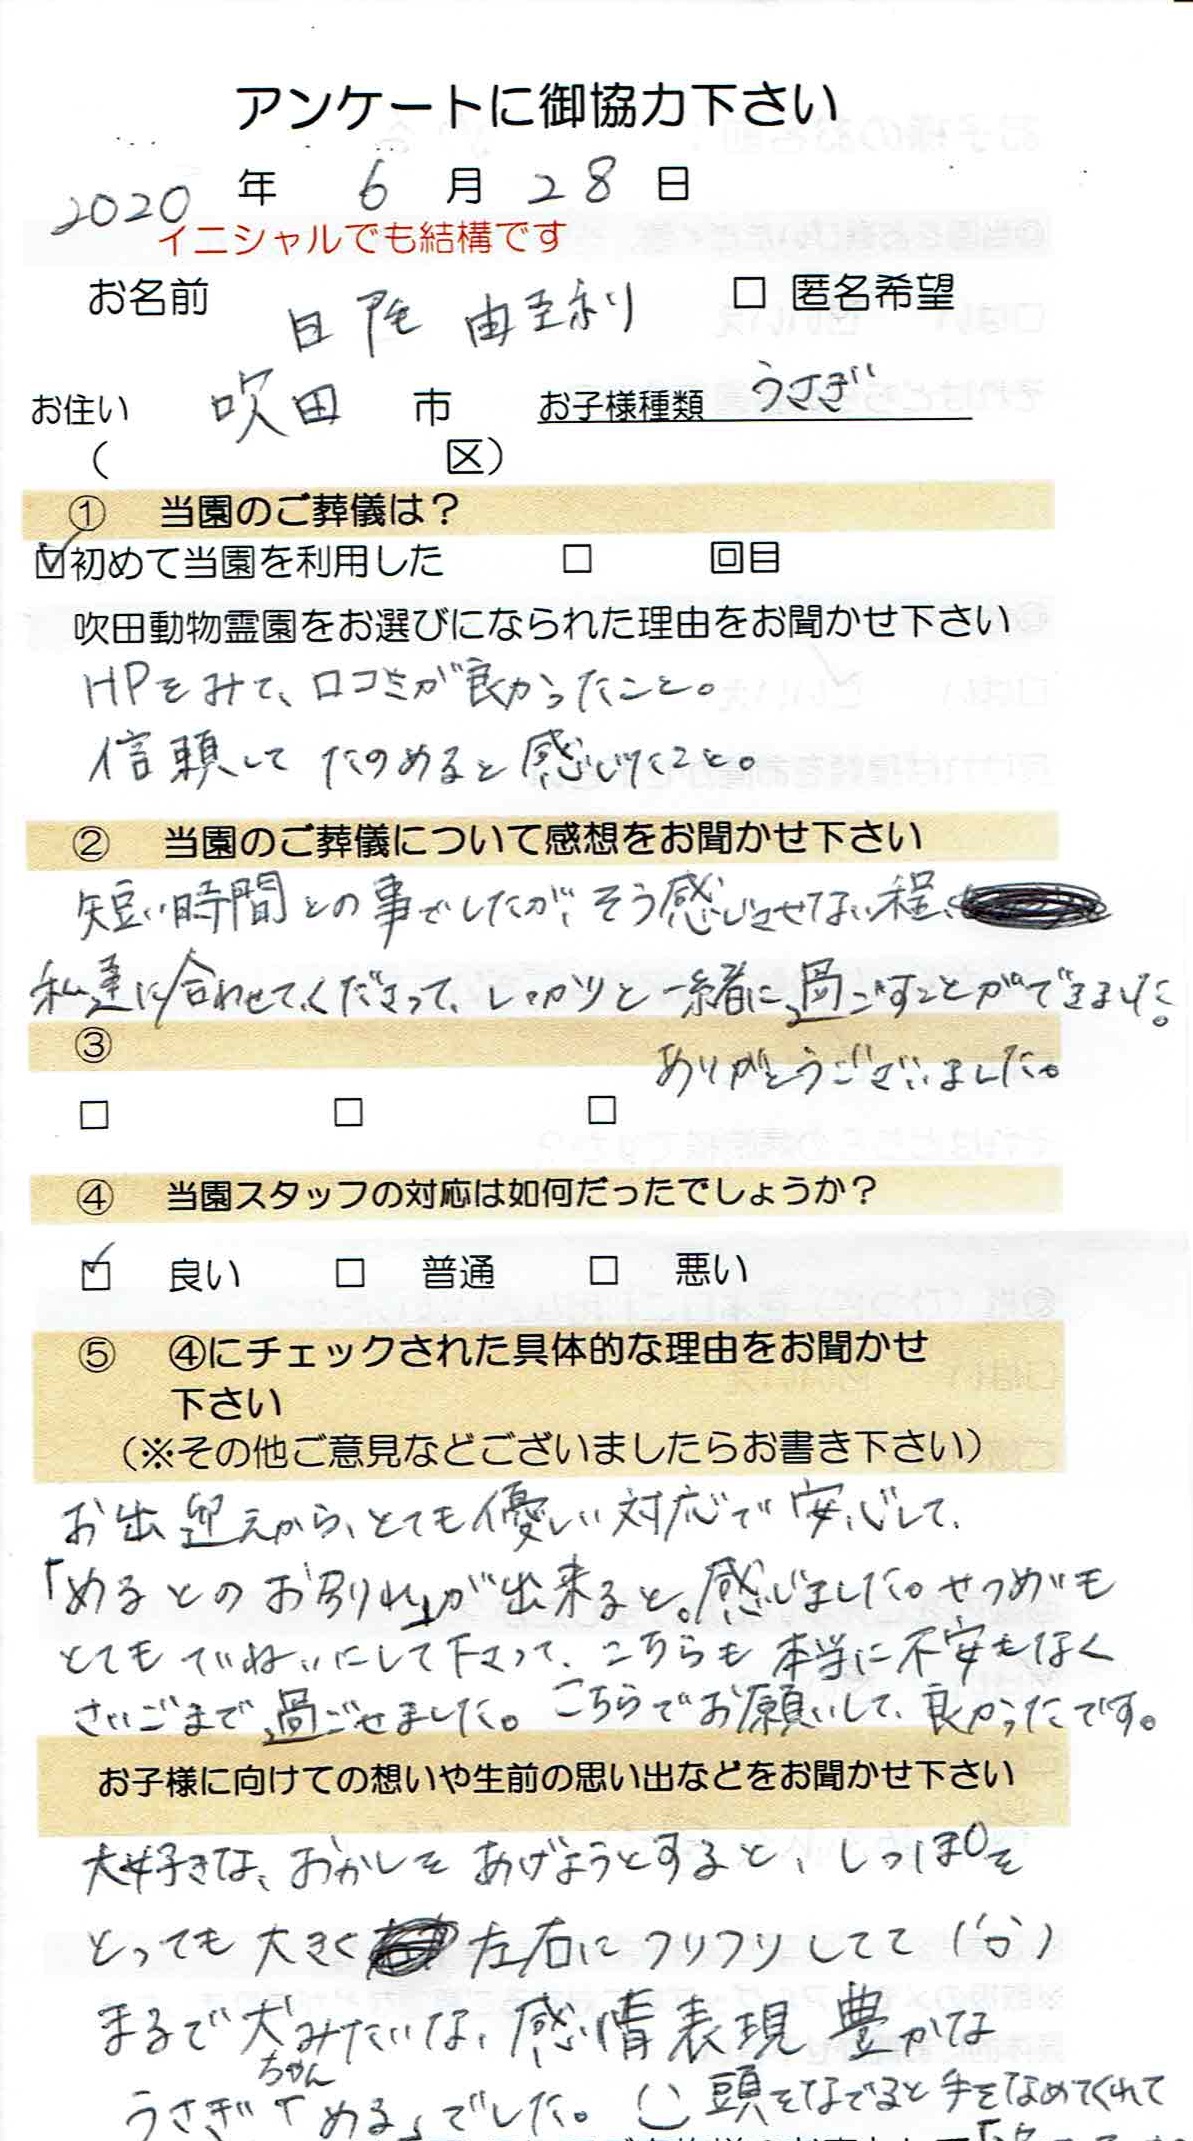 アンケートに御協力下さい
2020 年 6 月 28 日
イニシャルでも結構です
お名前 日尾 由至利 □ 匿名希望
お住い 吹田 市 お子様種類 うさぎ
( 区)
① 当園のご葬儀は?
☑初めて当園を利用した □ 回目
吹田動物霊園をお選びになられた理由をお聞かせ下さい
HPをみて、口コミが良かったこと。
信頼して たのめると感じたこと。
② 当園のご葬儀について感想をお聞かせ下さい
短い時間との事でしたが、そう感じさせない程、
私達に合わせてくださって、しっかりと一緒に過ごすことができました。
③
ありがとうございました。
□ □ □
④ 当園スタッフの対応は如何だったでしょうか?
☑ 良い □ 普通 □ 悪い
⑤ ④にチェックされた具体的な理由をお聞かせ
下さい
(※その他ご意見などございましたらお書き下さい)
お出迎えから、とても優しい対応で安心して、
「めるとのお別れ」が出来ると。感じました。せつめいも
とてもていねいにして下さって、こちらも本当に不安もなく
さいごまで過ごせました。こちらでお願いして、良かったです。
お子様に向けての想いや生前の思い出などをお聞かせ下さい
大好きな、おかしをあげようとすると、しっぽを
とっても大きく 左右にフリフリしてて
まるで犬みたいな、感情表現豊かな
ちゃん
うさぎ「める」でした。 頭をなでると手をなめてくれて